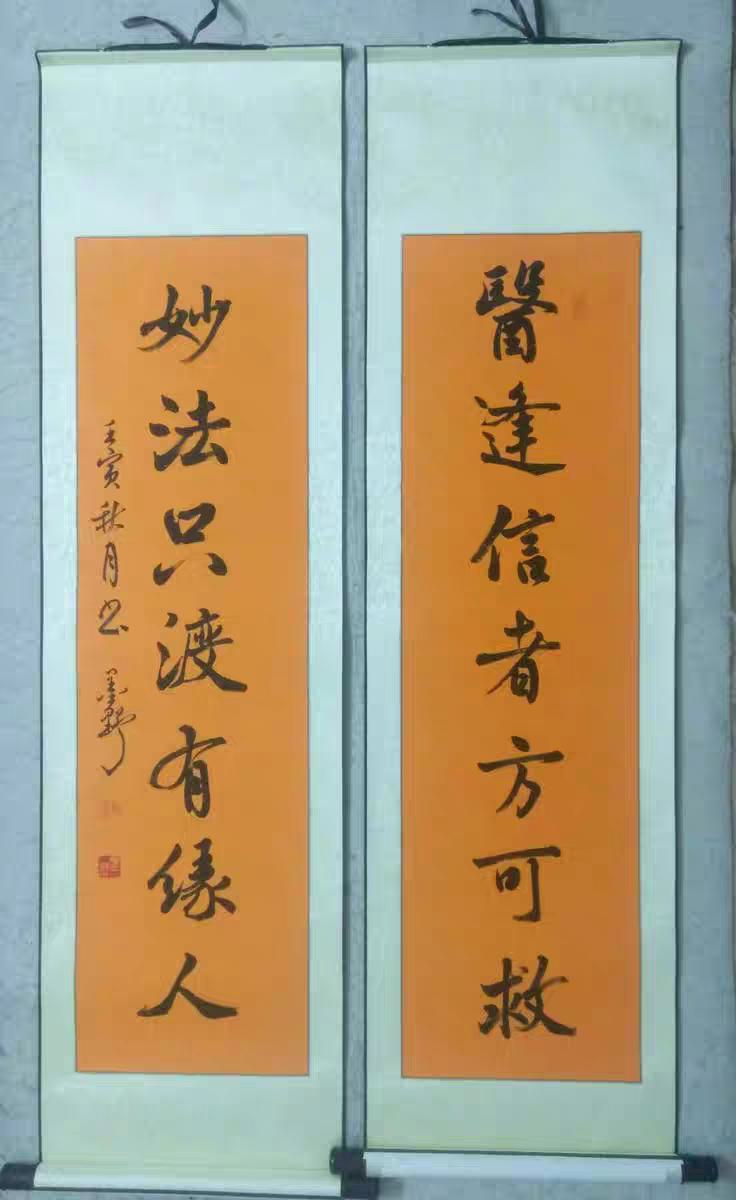 醫逢信者方可救
妙法只渡有缘人
壬寅秋月书